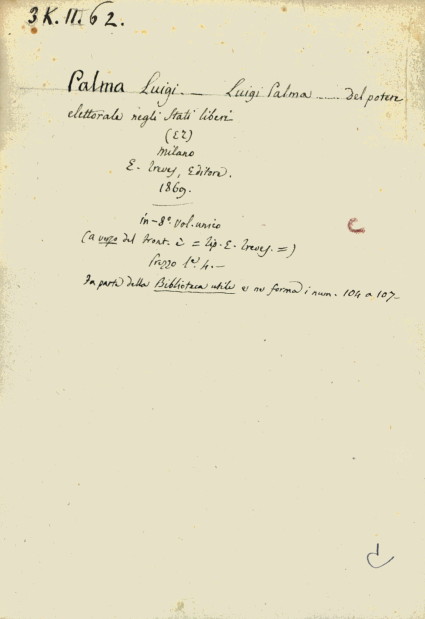 3 K. II. 62.
Palma Luigi. — Luigi Palma ...... del potere
elettorale negli Stati liberi
Milano
E. Treves, Editore.
1869.
in-8º. vol. unico
(a verso del front. è = Tip. E. Treves. =)
Prezzo L. 4. —
Fa parte della Biblioteca utile e ne forma i num. 104 a 107—